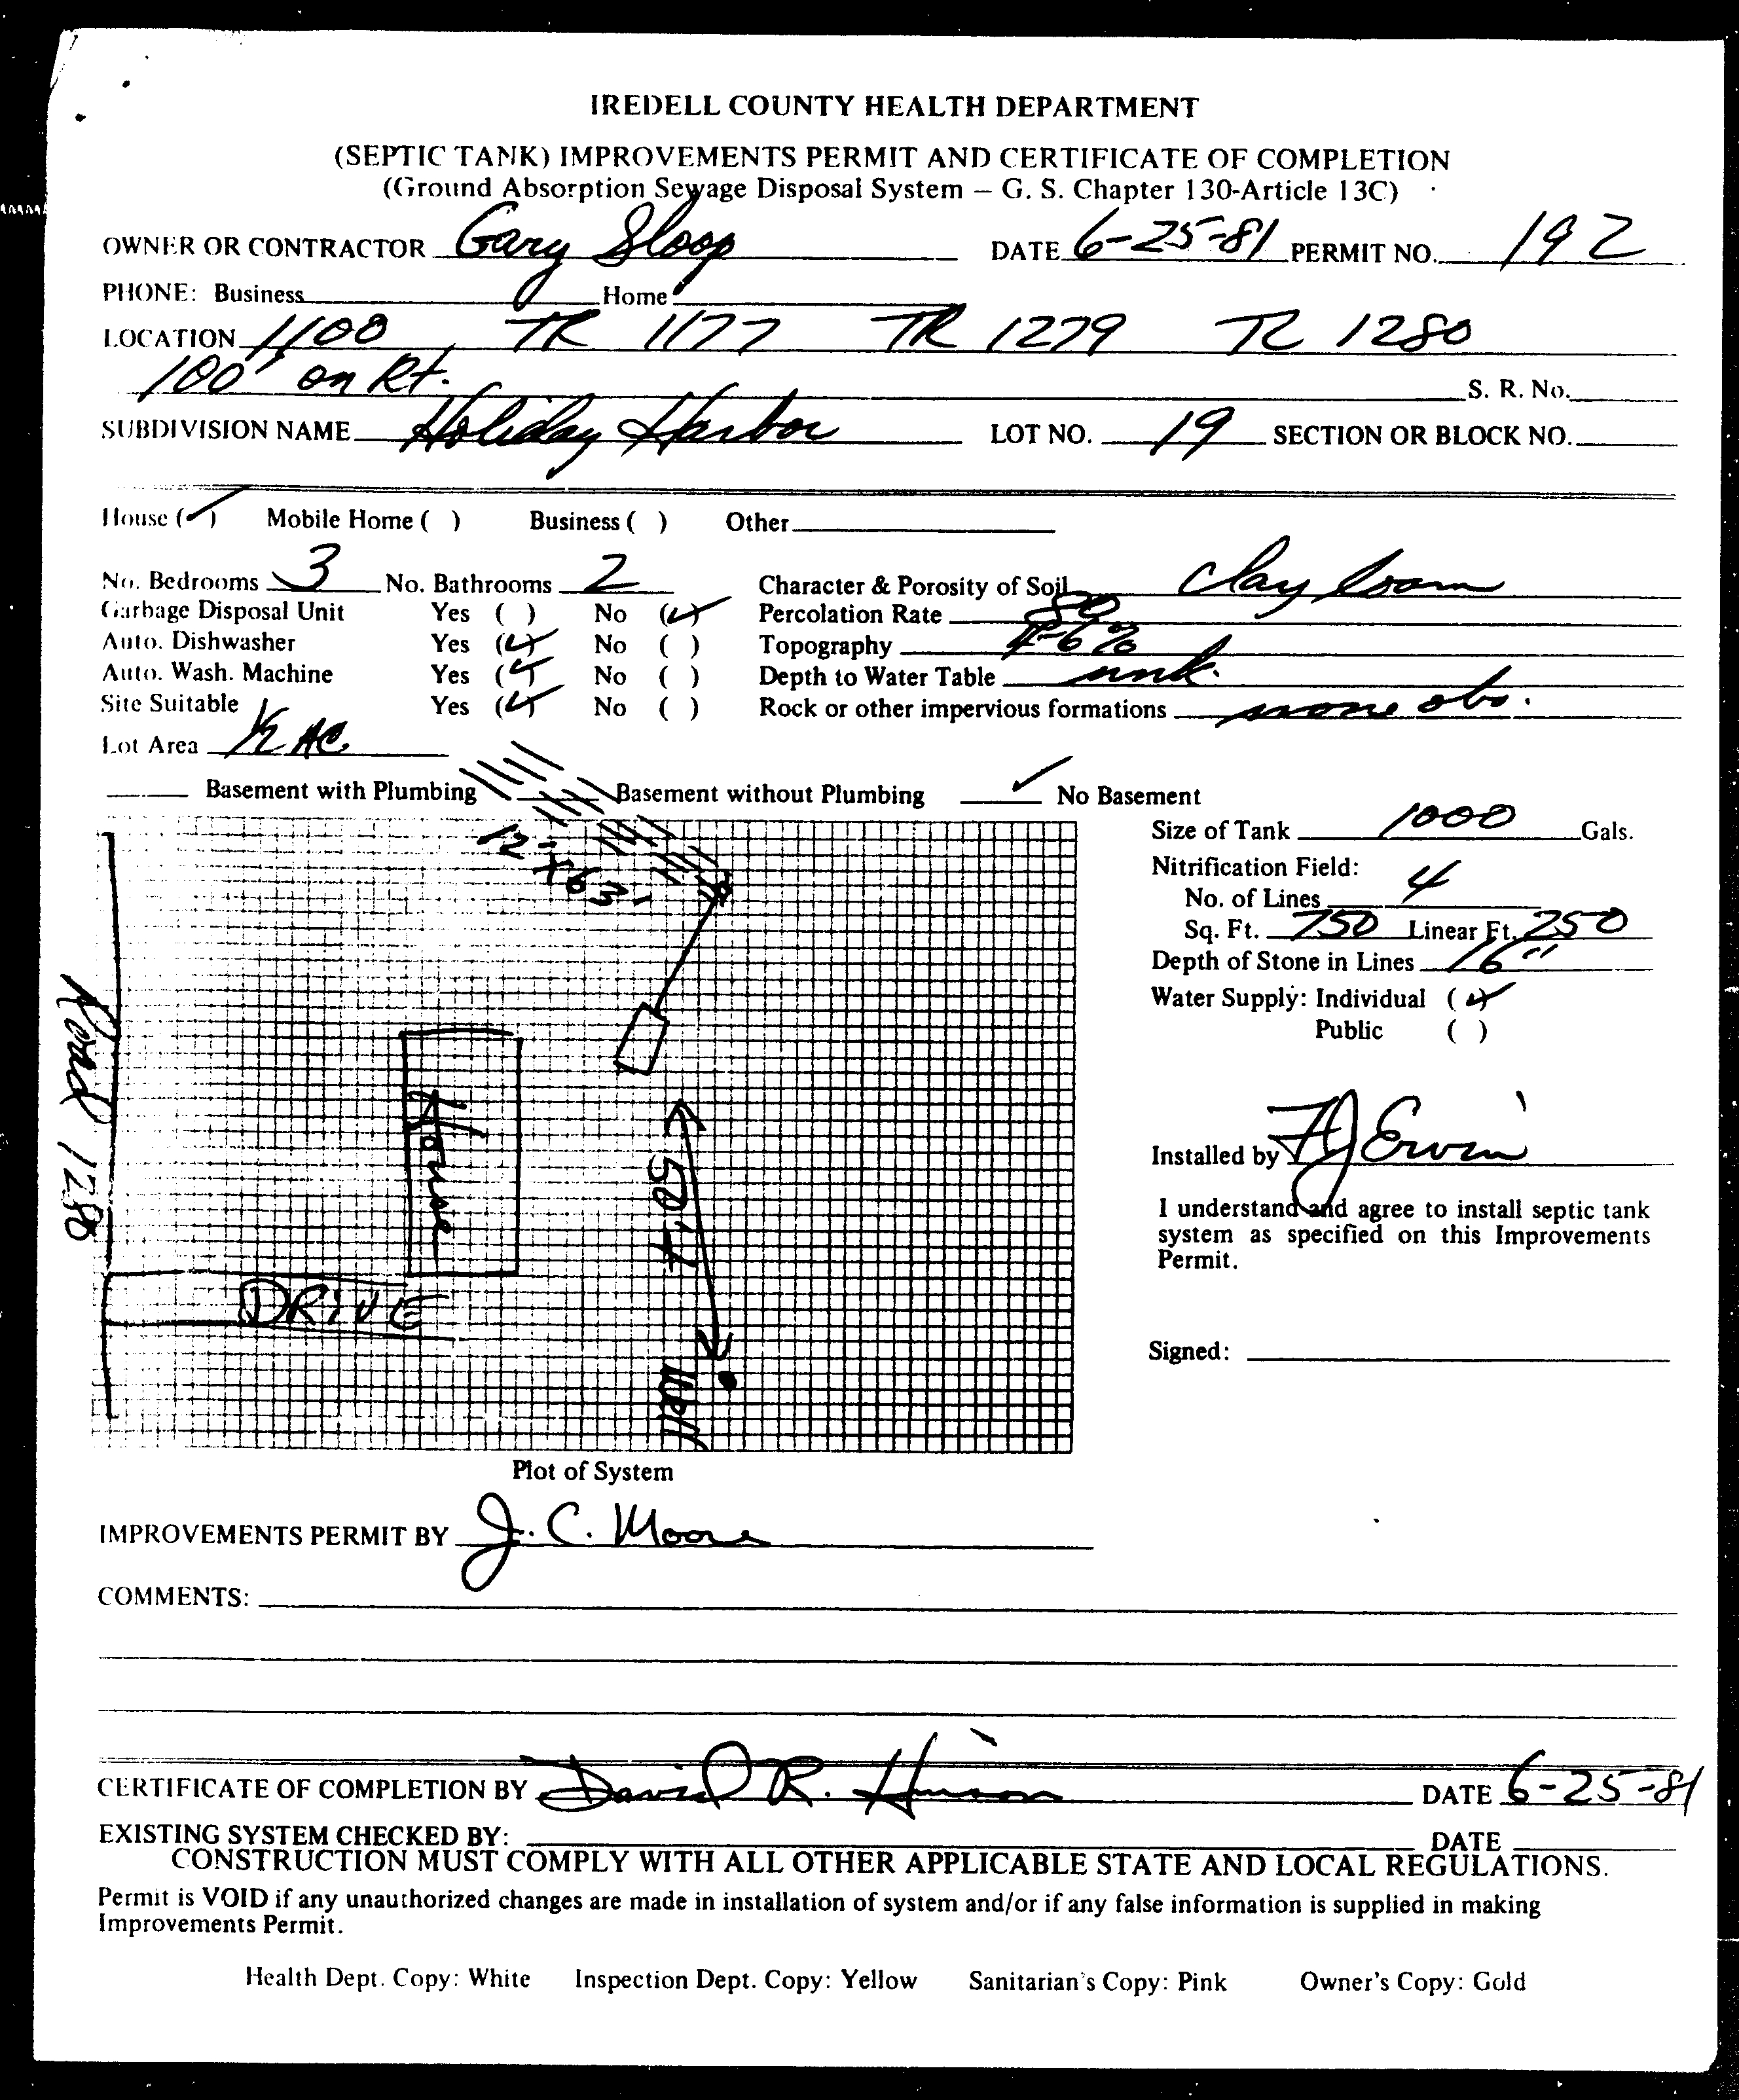 IREDELL COUNTY HEALTH DEPARTMENT
(SEPTIC TANK) IMPROVEMENTS PERMIT AND CERTIFICATE OF COMPLETION
(Ground Absorption Sewage Disposal System – G. S. Chapter 130-Article 13C)
OWNER OR CONTRACTOR Gary Sloop DATE 6-25-81 PERMIT NO. 192
PHONE: Business Home
LOCATION 1100 TR 1177 TR 1279 TL 1280
100' on Rt. S. R. No.
SUBDIVISION NAME Holiday Harbor LOT NO. 19 SECTION OR BLOCK NO.
House (✓) Mobile Home ( ) Business ( ) Other
No. Bedrooms 3 No. Bathrooms 2 Character & Porosity of Soil Clay loam
Garbage Disposal Unit Yes ( ) No (✓) Percolation Rate 80
Auto. Dishwasher Yes (✓) No ( ) Topography 4-6%
Auto. Wash. Machine Yes (✓) No ( ) Depth to Water Table unk.
Site Suitable Yes (✓) No ( ) Rock or other impervious formations none obs.
Lot Area ½ AC.
Basement with Plumbing Basement without Plumbing ✓ No Basement
Size of Tank 1000 Gals.
Nitrification Field:
No. of Lines 4
Sq. Ft. 750 Linear Ft. 250
Depth of Stone in Lines 16"
Water Supply: Individual (✓)
Public ( )
Road 1280
House
50'+
Well
DRIVE
Installed by FJ Ervin
I understand and agree to install septic tank
system as specified on this Improvements
Permit.
Signed:
Plot of System
IMPROVEMENTS PERMIT BY J. C. Moore
COMMENTS:
CERTIFICATE OF COMPLETION BY David R. Hinson DATE 6-25-81
EXISTING SYSTEM CHECKED BY: DATE
CONSTRUCTION MUST COMPLY WITH ALL OTHER APPLICABLE STATE AND LOCAL REGULATIONS.
Permit is VOID if any unauthorized changes are made in installation of system and/or if any false information is supplied in making
Improvements Permit.
Health Dept. Copy: White Inspection Dept. Copy: Yellow Sanitarian's Copy: Pink Owner's Copy: Gold